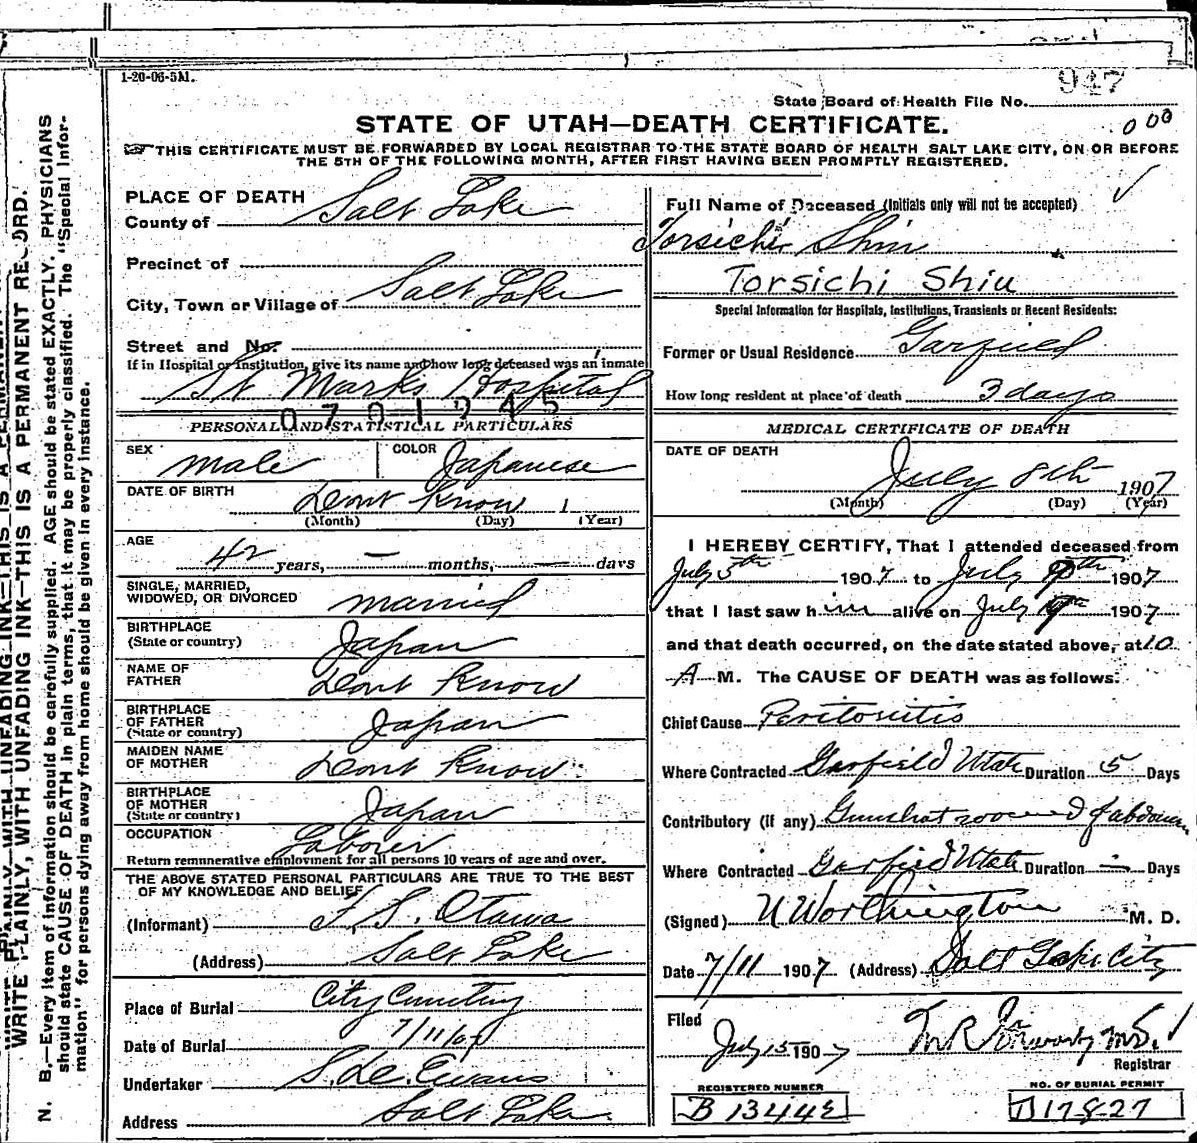 1-20-06-5M.
947
State Board of Health File No.
000
STATE OF UTAH—DEATH CERTIFICATE.
THIS CERTIFICATE MUST BE FORWARDED BY LOCAL REGISTRAR TO THE STATE BOARD OF HEALTH SALT LAKE CITY, ON OR BEFORE
THE 5TH OF THE FOLLOWING MONTH, AFTER FIRST HAVING BEEN PROMPTLY REGISTERED.
WRITE PLAINLY, WITH UNFADING INK—THIS IS A PERMANENT RECORD.
N. B.—Every item of information should be carefully supplied. AGE should be stated EXACTLY. PHYSICIANS
should state CAUSE OF DEATH in plain terms, that it may be properly classified. The "Special Infor-
mation" for persons dying away from home should be given in every instance.
PLACE OF DEATH
County of Salt Lake
Precinct of
City, Town or Village of Salt Lake
Street and No.
If in Hospital or institution, give its name and how long deceased was an inmate
St Marks Hospital
0701945
PERSONAL AND STATISTICAL PARTICULARS
SEX male COLOR Japanese
DATE OF BIRTH Dont Know 1
(Month) (Day) (Year)
AGE
42 years, — months, — days
SINGLE, MARRIED,
WIDOWED, OR DIVORCED married
BIRTHPLACE
(State or country) Japan
NAME OF
FATHER Dont Know
BIRTHPLACE
OF FATHER
(State or country) Japan
MAIDEN NAME
OF MOTHER Dont Know
BIRTHPLACE
OF MOTHER
(State or country) Japan
OCCUPATION Laborer
Return remunerative employment for all persons 10 years of age and over.
THE ABOVE STATED PERSONAL PARTICULARS ARE TRUE TO THE BEST
OF MY KNOWLEDGE AND BELIEF
(Informant) Otawa
(Address) Salt Lake
Place of Burial City Cemetery
Date of Burial 7/11/07
Undertaker Evans
Address Salt Lake
Full Name of Deceased (Initials only will not be accepted)
Torsichi Shiu
Torsichi Shiu
Special Information for Hospitals, Institutions, Transients or Recent Residents:
Former or Usual Residence Garfield
How long resident at place of death 3 days
MEDICAL CERTIFICATE OF DEATH
DATE OF DEATH
July 8th 1907
(Month) (Day) (Year)
I HEREBY CERTIFY, That I attended deceased from
July 5th 1907 to July 1907
that I last saw him alive on July 1907
and that death occurred, on the date stated above, at 10
A M. The CAUSE OF DEATH was as follows:
Chief Cause Peritonitis
Where Contracted Garfield Utah Duration 5 Days
Contributory (if any) Gunshot wound of abdomen
Where Contracted Garfield Utah Duration — Days
(Signed) Worthington M. D.
Date 7/11 1907 (Address) Salt Lake City
Filed
July 15 1907
Registrar
REGISTERED NUMBER
B 1344E
NO. OF BURIAL PERMIT
B 17827